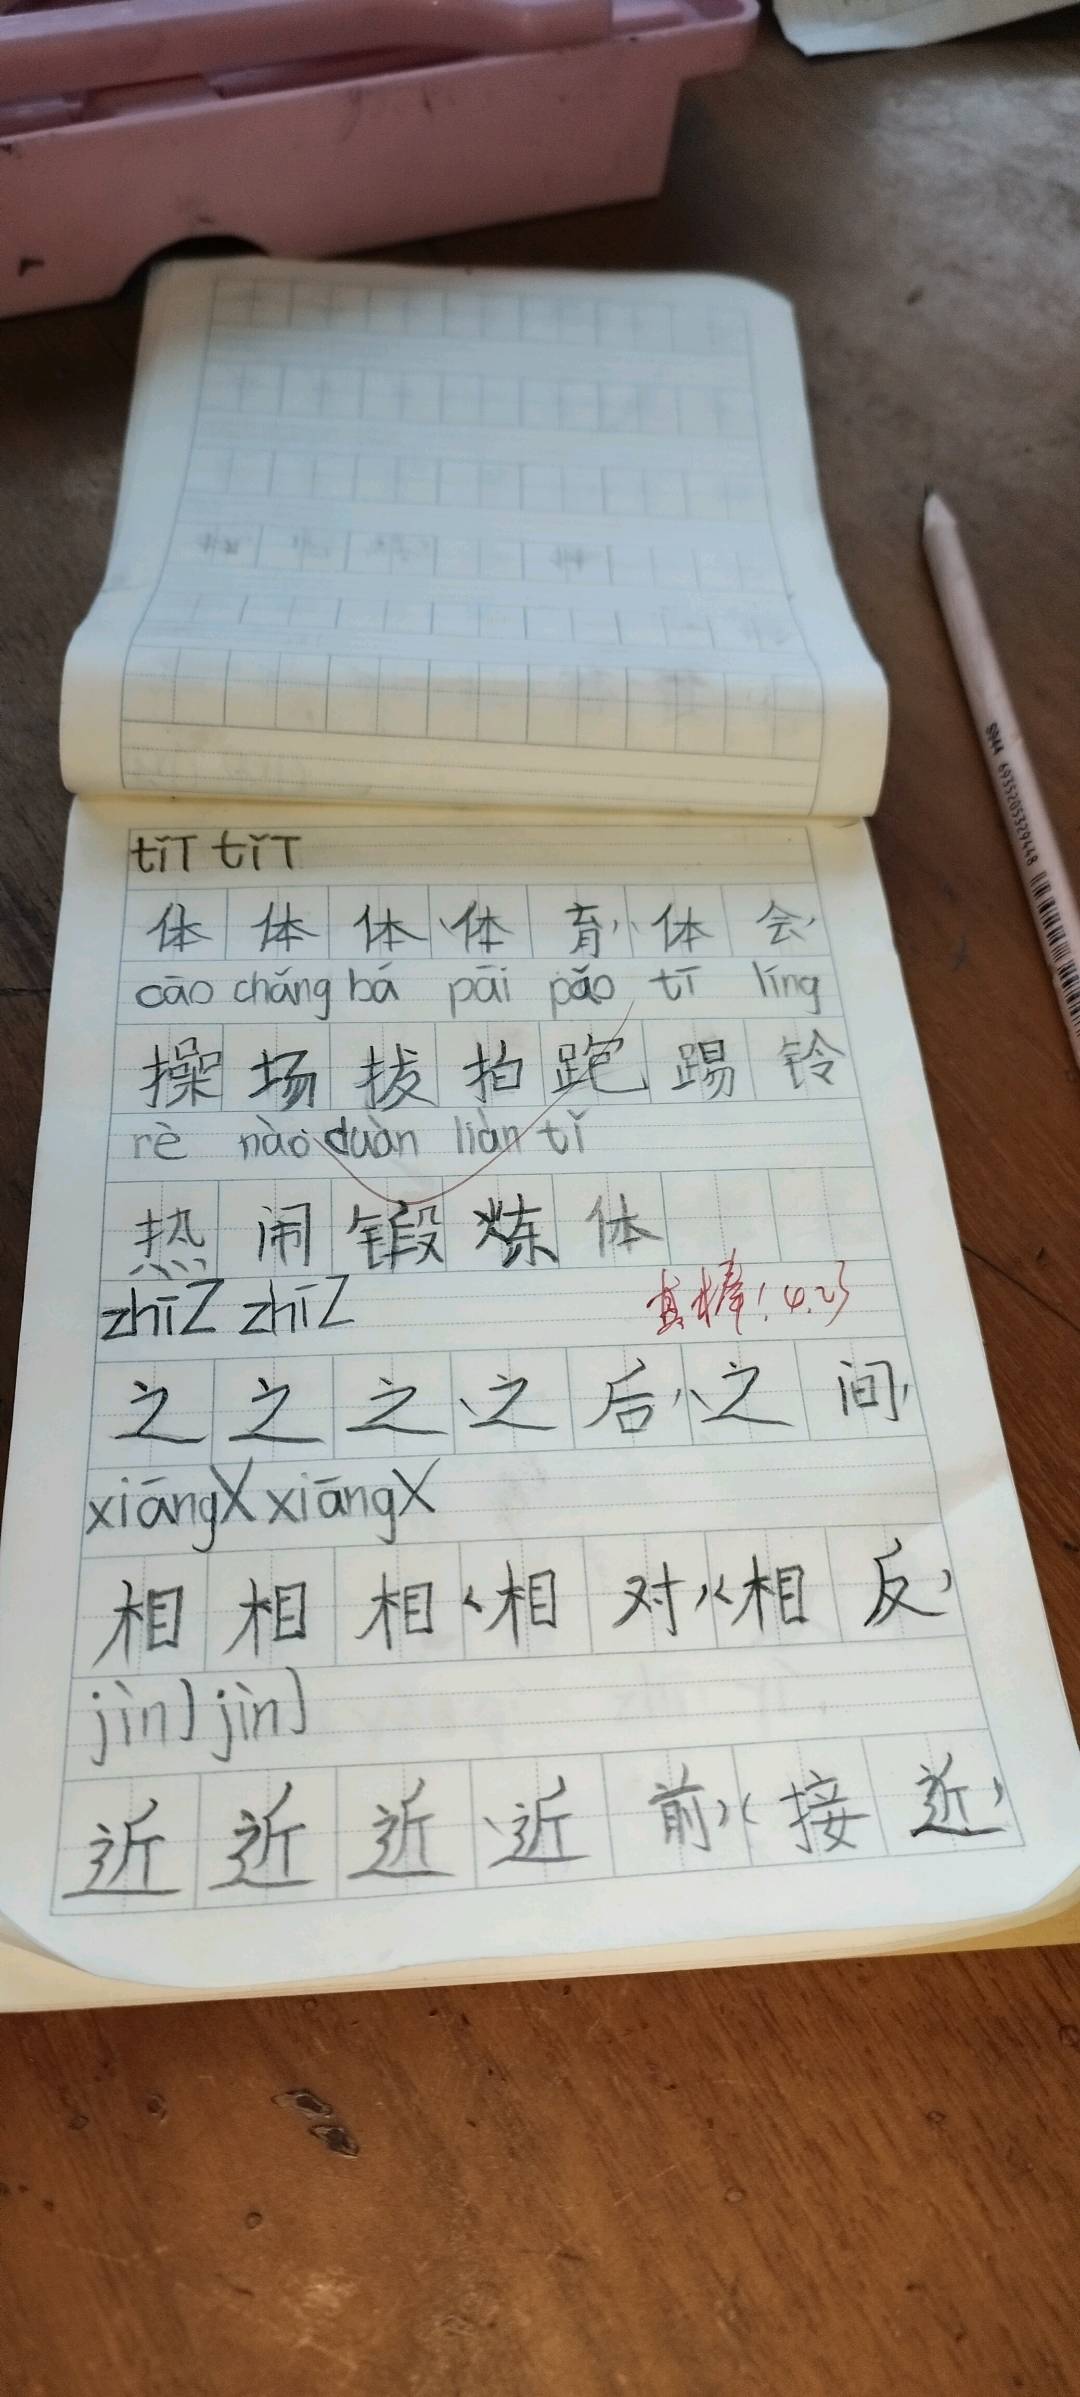 tǐT tǐT
体 体 体 、体 育、、体 会、
cāo chǎng bá pāi pǎo tī líng
操 场 拔 拍 跑 踢 铃
rè nào duàn liàn tǐ
热 闹 锻 炼 体
真棒！4.23
zhīZ zhīZ
之 之 之 、之 后、、之 间、
xiāngX xiāngX
相 相 相 、相 对、、相 反、
jìnJ jìnJ
近 近 近 、近 前、、接 近、
S944 6935205329448